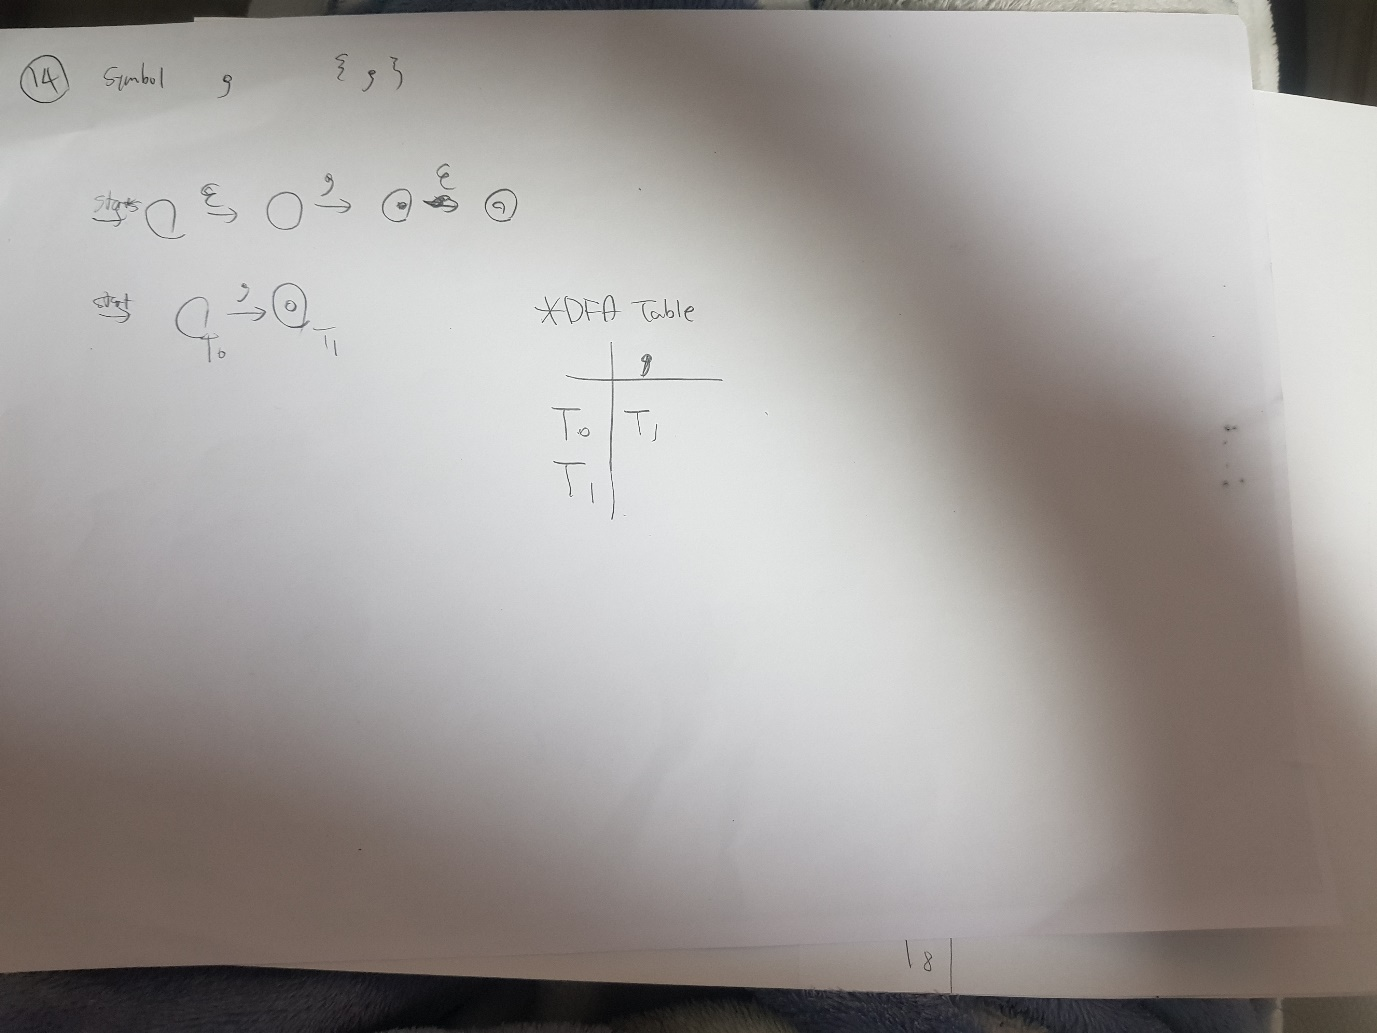 14 Symbol , { , }
start ε , ε
start , T0 T1
*DFA Table
,
T0 T1
T1
18